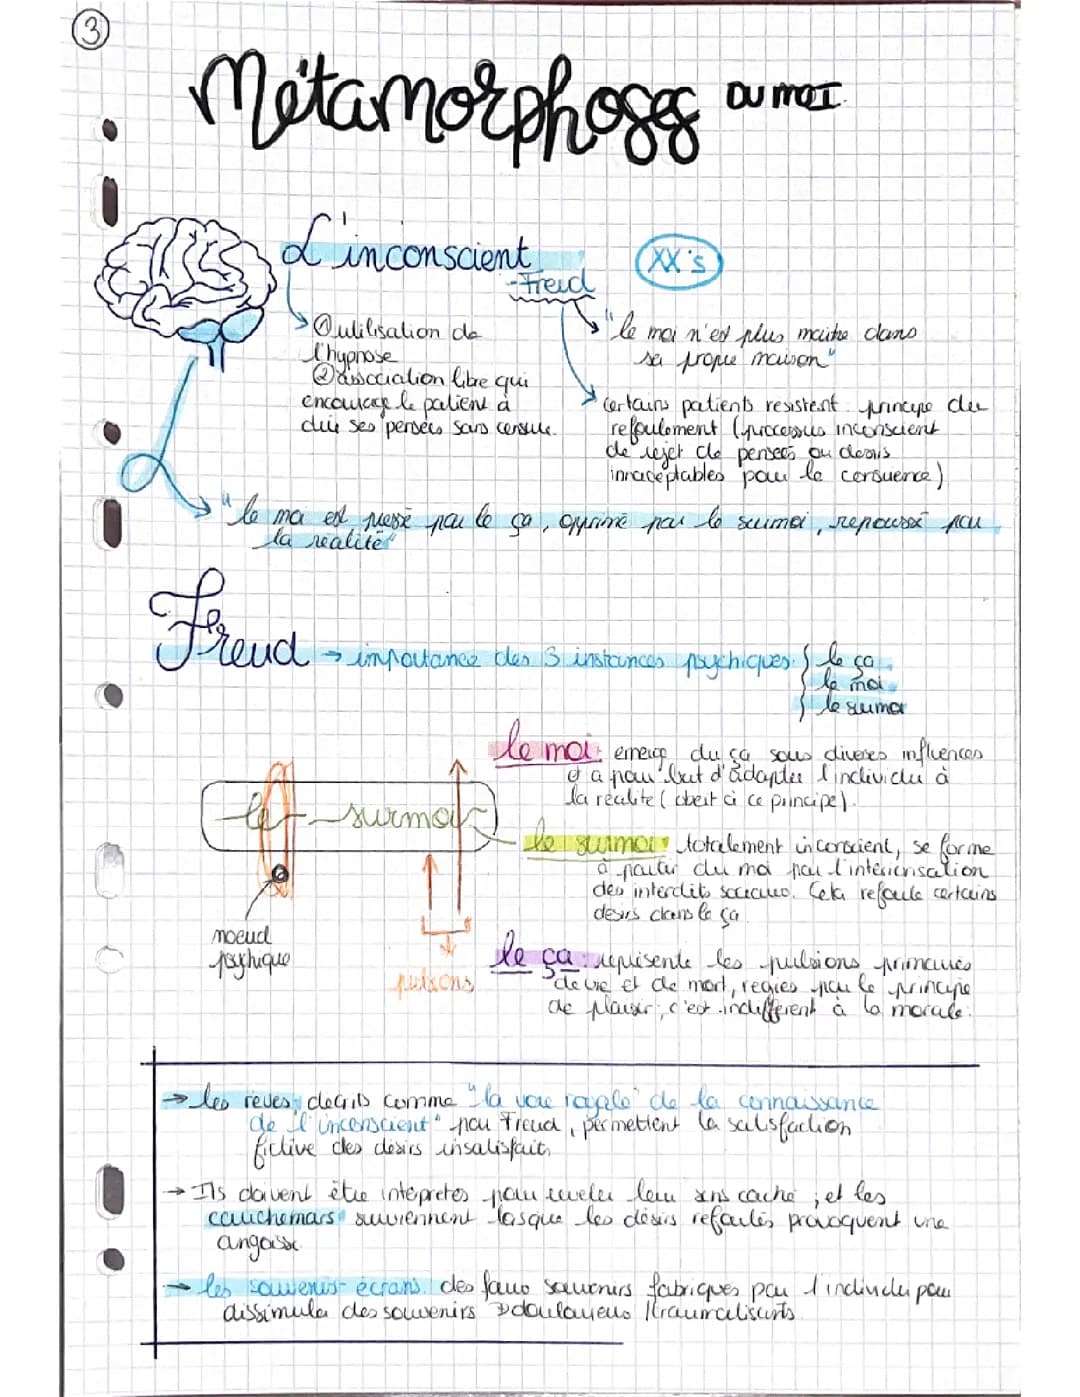 3
Métamorphoses DU MOI
L'inconscient
XX's
-Freud
①utilisation de
l'hypnose
②association libre qui
encourage le patient à
dire ses pensées sans censure.
"le moi n'est plus maître dans
sa propre maison"
certains patients resistent : principe du
refoulement (processus inconscient
de rejet de pensées ou desirs
inacceptables pour la conscience)
"le moi est pressé par le ça, opprimé par le surmoi, repoussé par
la réalité"
Freud → importance des 3 instances psychiques
le ça
le moi
le surmoi
le moi : émerge du ça sous diverses influences
et a pour but d'adapter l'individu à
la réalité (obéit à ce principe).
le surmoi
le surmoi : totalement inconscient, se forme
à partir du moi par l'intériorisation
des interdits sociaux. Cela refoule certains
desirs dans le ça
noeud
psychique
pulsions
le ça : représente les pulsions primaires
de vie et de mort, régies par le principe
de plaisir, c'est indifférent à la morale.
→ les rêves, décrits comme "la voie royale de la connaissance
de l'inconscient" par Freud, permettent la satisfaction
fictive des desirs insatisfaits
→ Ils doivent être interpretes pour reveler leur sens caché ; et les
cauchemars surviennent lorsque les désirs refoulés provoquent une
angoisse.
→ les souvenirs-écrans : des faux souvenirs fabriques par l'individu pour
dissimuler des souvenirs douloureux / traumatisants